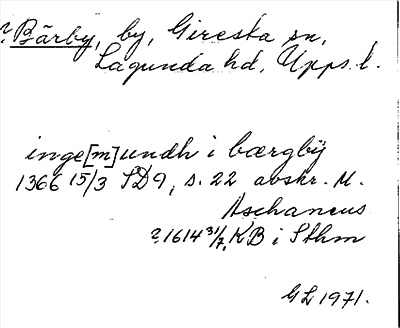 ? Bärby, by, Giresta sn,
Lagunda hd, Upps. l.
inge[m]undh i bærgby
1366 15/3 SD9, s. 22 avskr. M.
Aschaneus
? 1614 31/7, KB i Sthm
GL 1971.